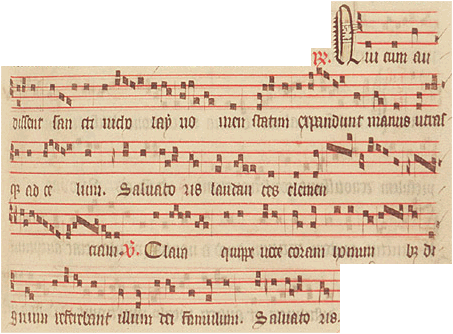 R. Qui cum au
dissent san cti nicho lay no men statim expandunt manus utras
q; ad ce lum. Saluato ris laudan tes clemen
ciam. V. Clara quippe uoce coram di
gnum referebant illum dei famulum. Saluato ris.